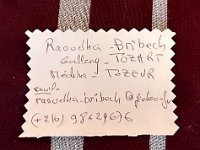 Raoudha - Bribech
Gallery - TOZART
Médina - TOZEUR
email
raoudha-bribech @
(+216) 98429676